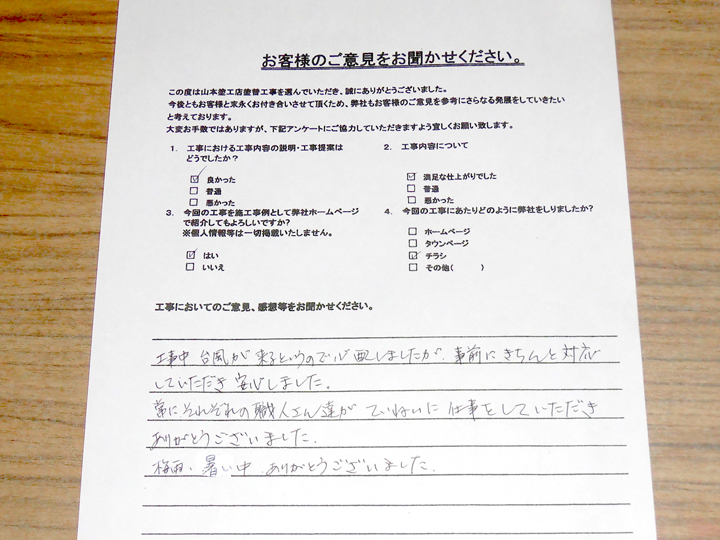 お客様のご意見をお聞かせください。
この度は山本塗工店塗替工事を選んでいただき、誠にありがとうございました。
今後ともお客様と末永くお付き合いさせて頂くため、弊社もお客様のご意見を参考にさらなる発展をしていきたい
と考えております。
大変お手数ではありますが、下記アンケートにご協力していただきますよう宜しくお願い致します。
1. 工事における工事内容の説明・工事提案は
どうでしたか？
☑ 良かった
□ 普通
□ 悪かった
2. 工事内容について
☑ 満足な仕上がりでした
□ 普通
□ 悪かった
3. 今回の工事を施工事例として弊社ホームページ
で紹介してもよろしいですか？
※個人情報等は一切掲載いたしません。
☑ はい
□ いいえ
4. 今回の工事にあたりどのように弊社をしりましたか？
□ ホームページ
□ タウンページ
☑ チラシ
□ その他( )
工事においてのご意見、感想等をお聞かせください。
工事中 台風が来るというので心配しましたが、事前にきちんと対応
していただき安心しました。
常にそれぞれの職人さん達が ていねいに仕事をしていただき
ありがとうございました。
梅雨、暑い中、ありがとうございました。